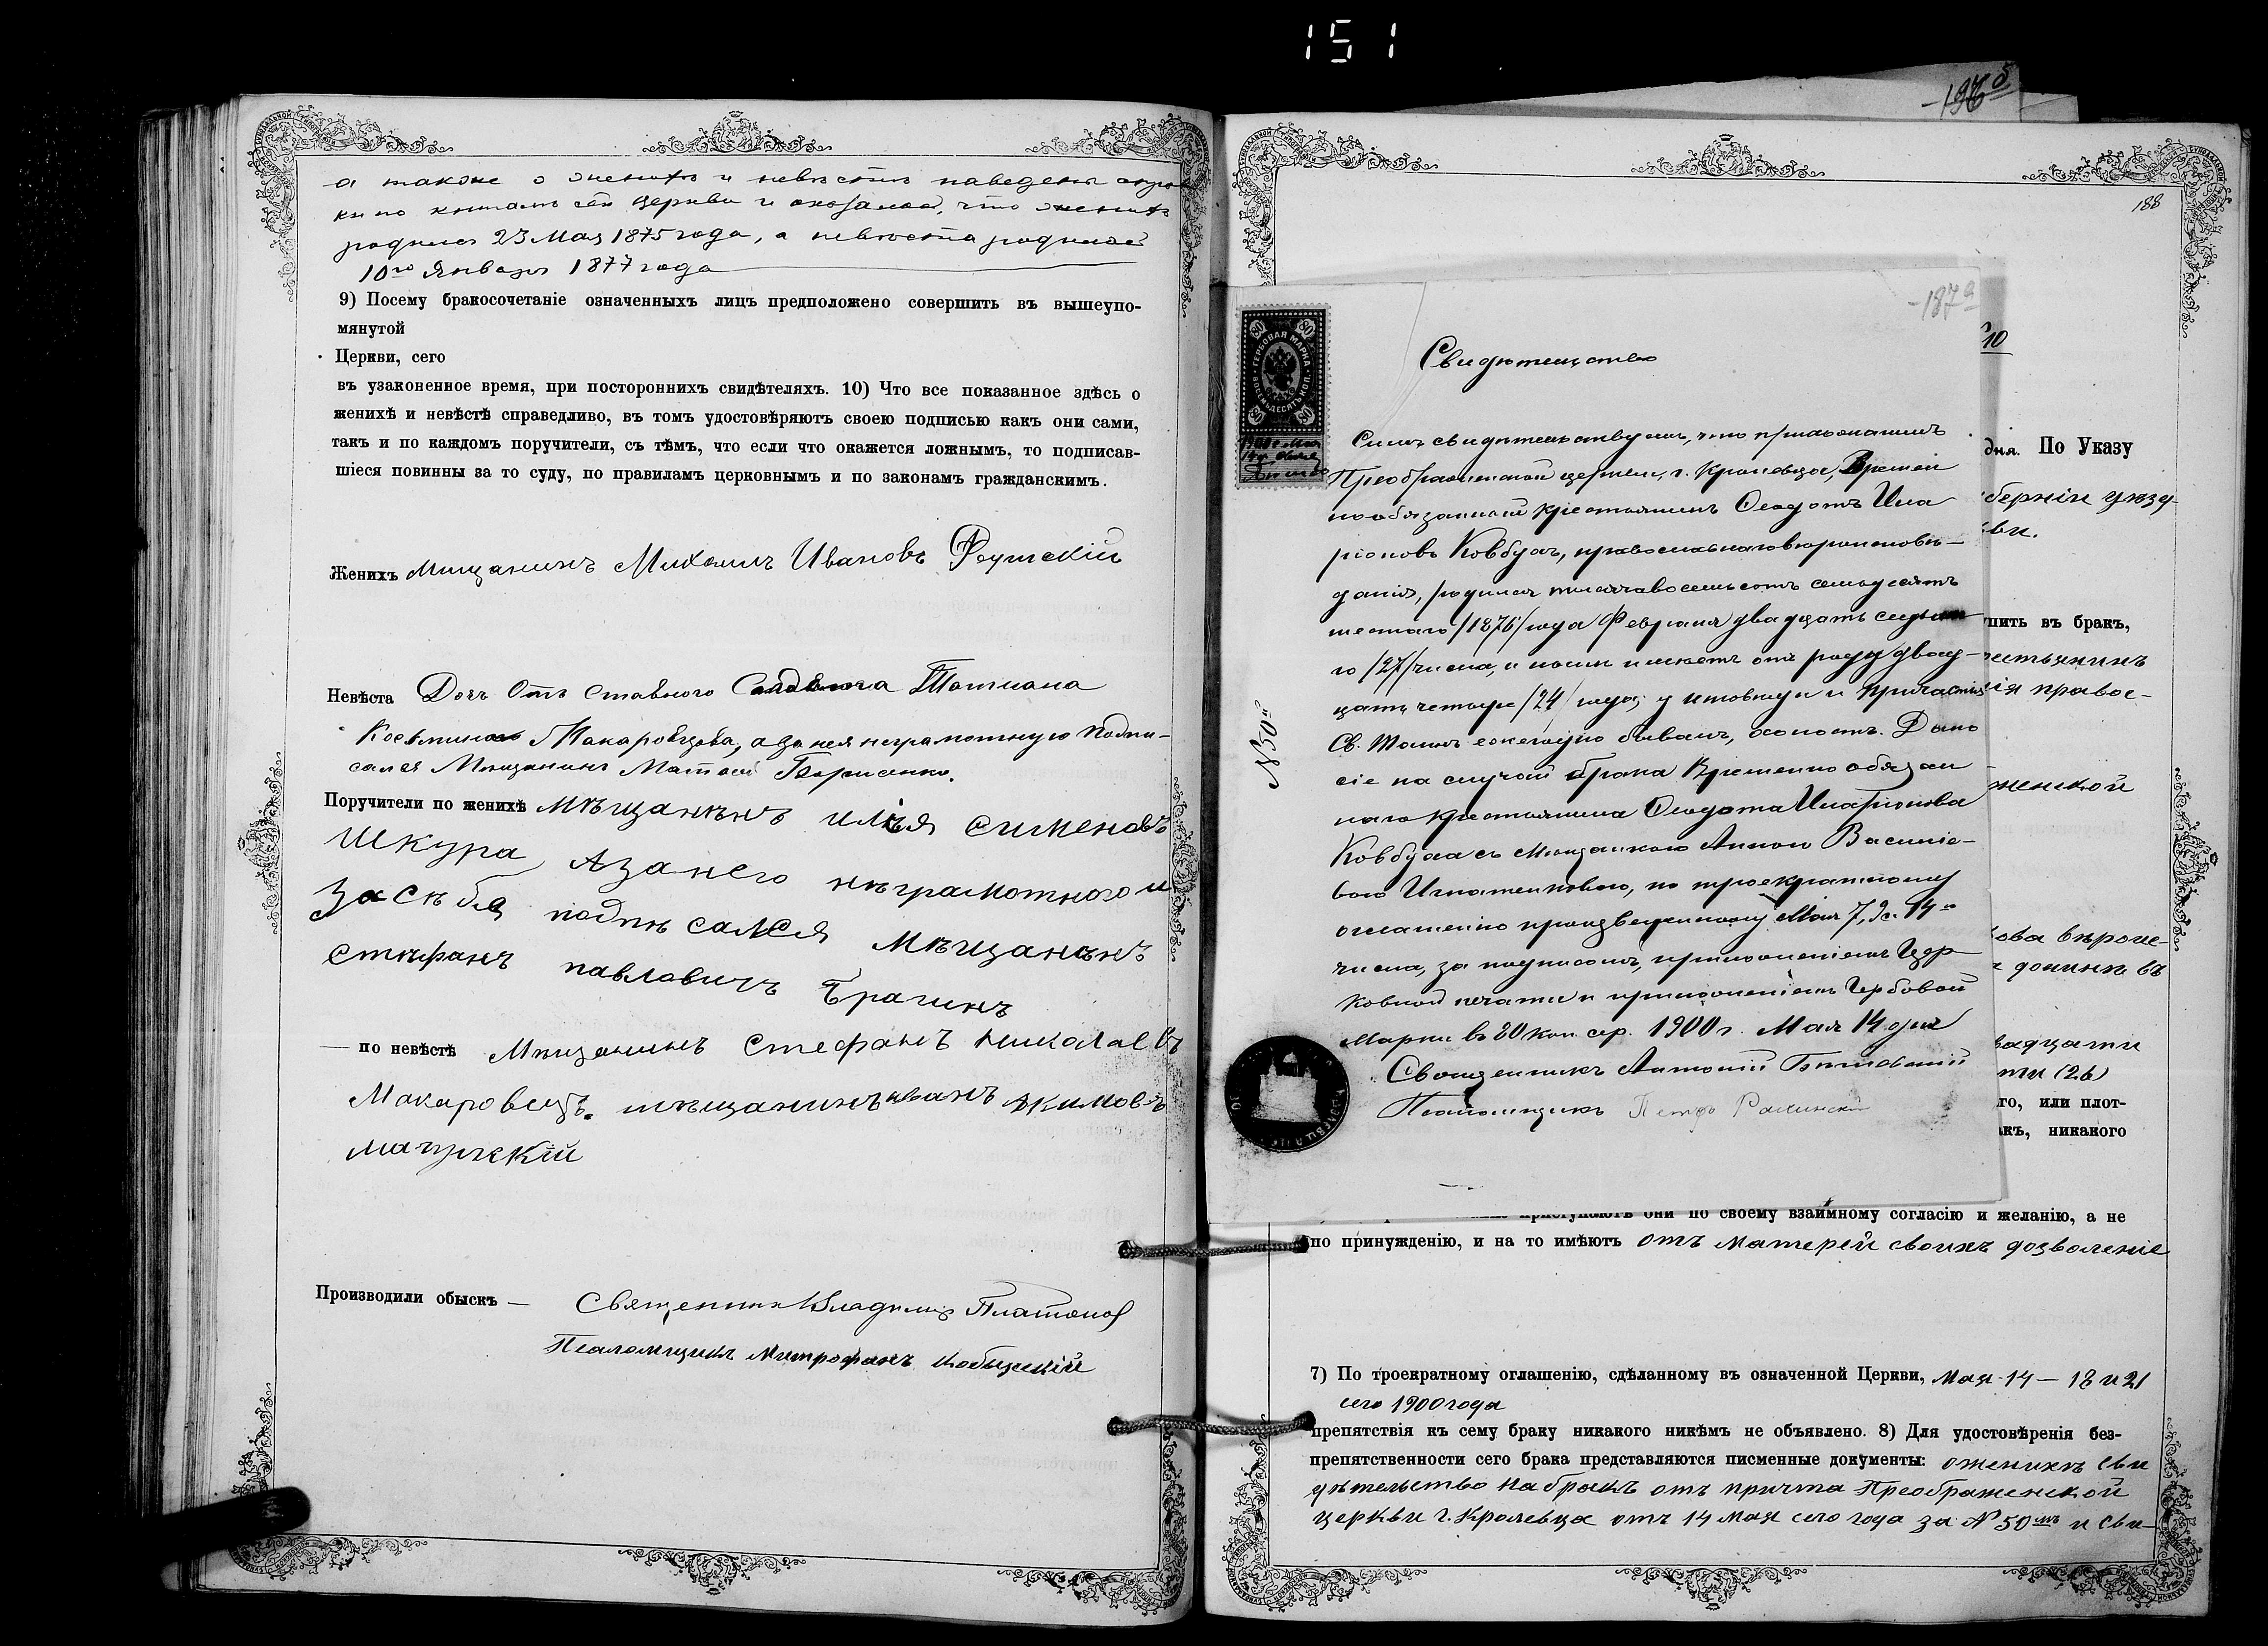 151
а также о женихѣ и невѣстѣ наведены справ
ки по книгамъ сей церкви и оказалось, что женихъ
родился 23 Мая 1875 года, а невѣста родилась
10го Января 1877 года
9) Посему бракосочетаніе означенныхъ лицъ предположено совершить въ вышеупо-
мянутой
Церкви, сего
въ узаконенное время, при постороннихъ свидѣтеляхъ. 10) Что все показанное здѣсь о
женихѣ и невѣстѣ справедливо, въ томъ удостовѣряютъ своею подписью какъ они сами,
такъ и по каждомъ поручители, съ тѣмъ, что если что окажется ложнымъ, то подписав-
шіеся повинны за то суду, по правиламъ церковнымъ и по законамъ гражданскимъ.
Женихъ Мищанинъ Михаилъ Ивановъ
Невѣста Дочь Отъ ставного Татиана
Косьмина Макаровцева, а за нея неграмотную подпи-
сался Мещанинъ Матвей Борисенко.
Поручители по женихѣ Мѣщанѣнъ илья Сименовъ
Шкура Азанего нѣграмотного и
За сѣбя подпѣсался Мѣщанѣнъ
Стѣфанъ павловичъ Брагинъ
— по невѣстѣ Мѣщанинъ Стефанъ Николаевъ
Макаровецъ. мѣщанинъ иванъ Якимовъ
Производили обыскъ — Священникъ Владимиръ Платонов
Псаломщикъ Митрофанъ Кобыщскій
-196 б
188
-187а
Свидѣтельство
80 80
ГЕРБОВАЯ МАРКА
ВОСЕМЬДЕСЯТЪ КОП.
80 80
Симъ свидѣтельствуемъ, что прихожанинъ
Преображенской церкви, г. Кролевца, Времен
но обязанный крестьянинъ Ѳеодотъ Ила
ріоновъ Ковбуса, православнаго вѣроисповѣ-
данія, родился тысяча восемьсотъ семьдесятъ
шестаго /1876/ года Февраля двадцать седьма
го /27/ числа, и нынѣ имѣетъ отъ роду двад-
цать четыре /24/ года; у исповѣди и Причастія
Св. Таинъ ежегодно бывалъ, холостъ. Дано
сіе на случай брака Временно обязан
наго крестьянина Ѳеодота Иларіонова
Ковбуса съ Мѣщанкою Анною Василіе-
вою Игнатенковою, по троекратному
оглашенію произведенному Мая 7, 9 и 14го
числа, за подписомъ, приложеніемъ Цер
ковной печати и приложеніемъ Гербовой
Марки въ 80 коп. сер. 1900 г. Мая 14 дня
Священникъ Антоній
Псаломщикъ Петръ
N 50й
10
дня. По Указу
берніи уѣзд-
ви.
пить въ бракъ,
естьянинъ
ія правос-
женской
ова вѣроис-
домъ въ
вадцати
ти (26)
го, или плот-
къ, никакого
приступаютъ они по своему взаимному согласію и желанію, а не
по принужденію, и на то имѣютъ отъ матерей своихъ дозволеніе
7) По троекратному оглашенію, сдѣланному въ означенной Церкви, Мая 14 — 18 и 21
сего 1900 года
препятствія къ сему браку никакого никѣмъ не объявлено. 8) Для удостовѣренія без-
препятственности сего брака представляются писменные документы: о женихѣ сви
дѣтельство на бракъ отъ причта Преображенской
церкви г. Кролевца отъ 14 мая сего года за N 50мъ и сви-